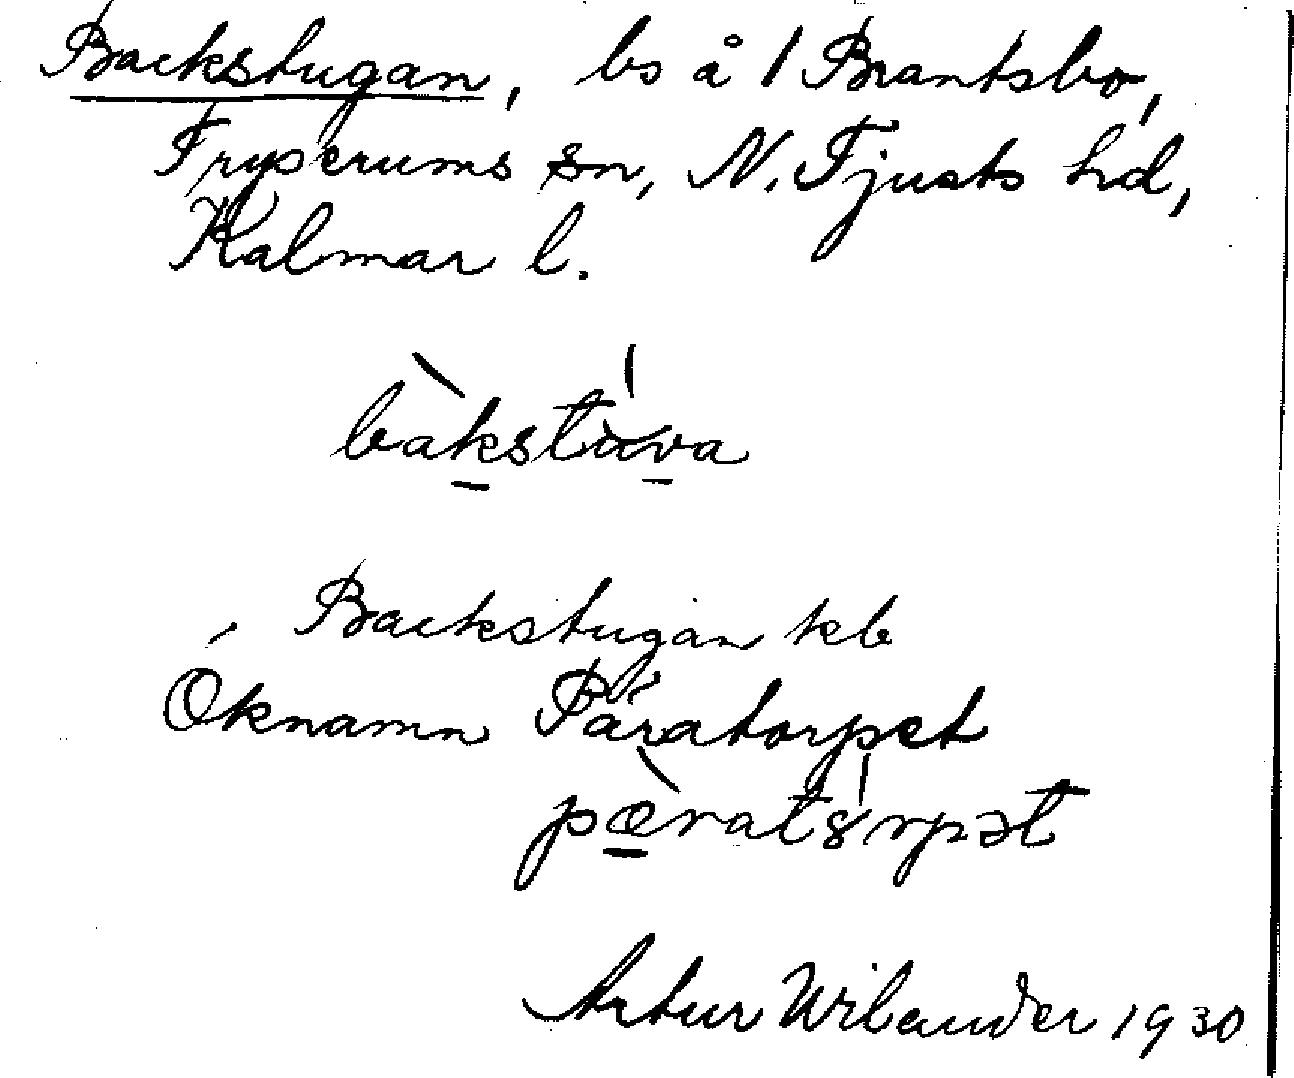 Backstugan, bs å 1 Brantsbo,
Tryserums sn, N. Tjusts hd,
Kalmar l.
bàkstúva
Backstugan kb
Öknamn Päratorpet
pæ̀rats̍rpət
Artur Wilander 1930